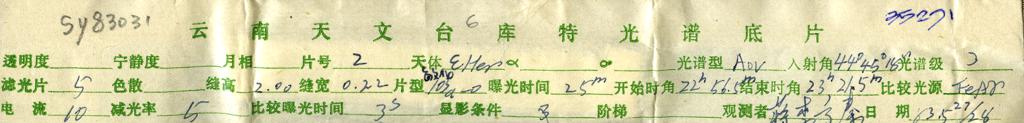 Sy83031 云南天文台库特光谱底片 6 35271
透明度 宁静度 月相 片号 2 天体 ε Her α 光谱型 A0V 入射角 44°45' 光谱级 2
滤光片 5 色散 缝高 2.00 缝宽 0.22 片型 103a-0 曝光时间 25m 开始时角 22h56.5m 结束时角 23h21.5m 比较光源 FeAr
电流 10 减光率 15 比较曝光时间 3s 显影条件 3 阶梯 观测者 日期